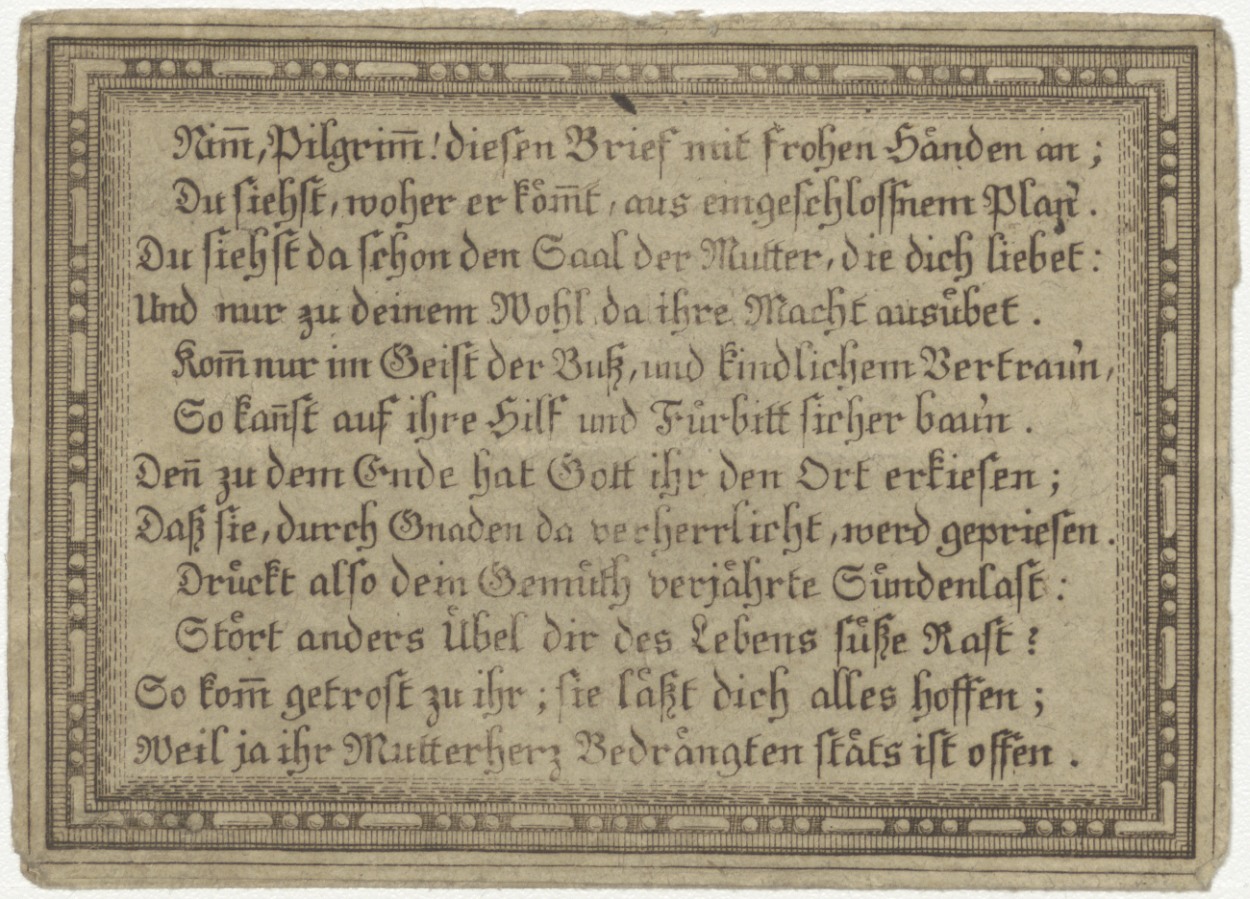 Nim̅, Pilgrim̅! dieſen Brief mit frohen Haͤnden an;
Du ſiehſt, woher er koͤm̅t, aus eingeſchloſſnem Plan̅.
Du ſiehſt da ſchon den Saal der Mutter, die dich liebet:
Und nur zu deinem Wohl da ihre Macht ausuͤbet.
Kom̅ nur im Geiſt der Buß, und kindlichem Vertrau'n,
So kan̅ſt auf ihre Hilf und Fuͤrbitt ſicher bau'n.
Den̅ zu dem Ende hat Gott ihr den Ort erkieſen;
Daß ſie, durch Gnaden da verherrlicht, werd geprieſen.
Druͤckt alſo dein Gemuͤth verjaͤhrte Suͤndenlaſt:
Stoͤrt anders Uͤbel dir des Lebens ſuͤße Raſt?
So kom̅ getroſt zu ihr; ſie laͤßt dich alles hoffen;
Weil ja ihr Mutterherz Bedraͤngten ſtaͤts iſt offen.